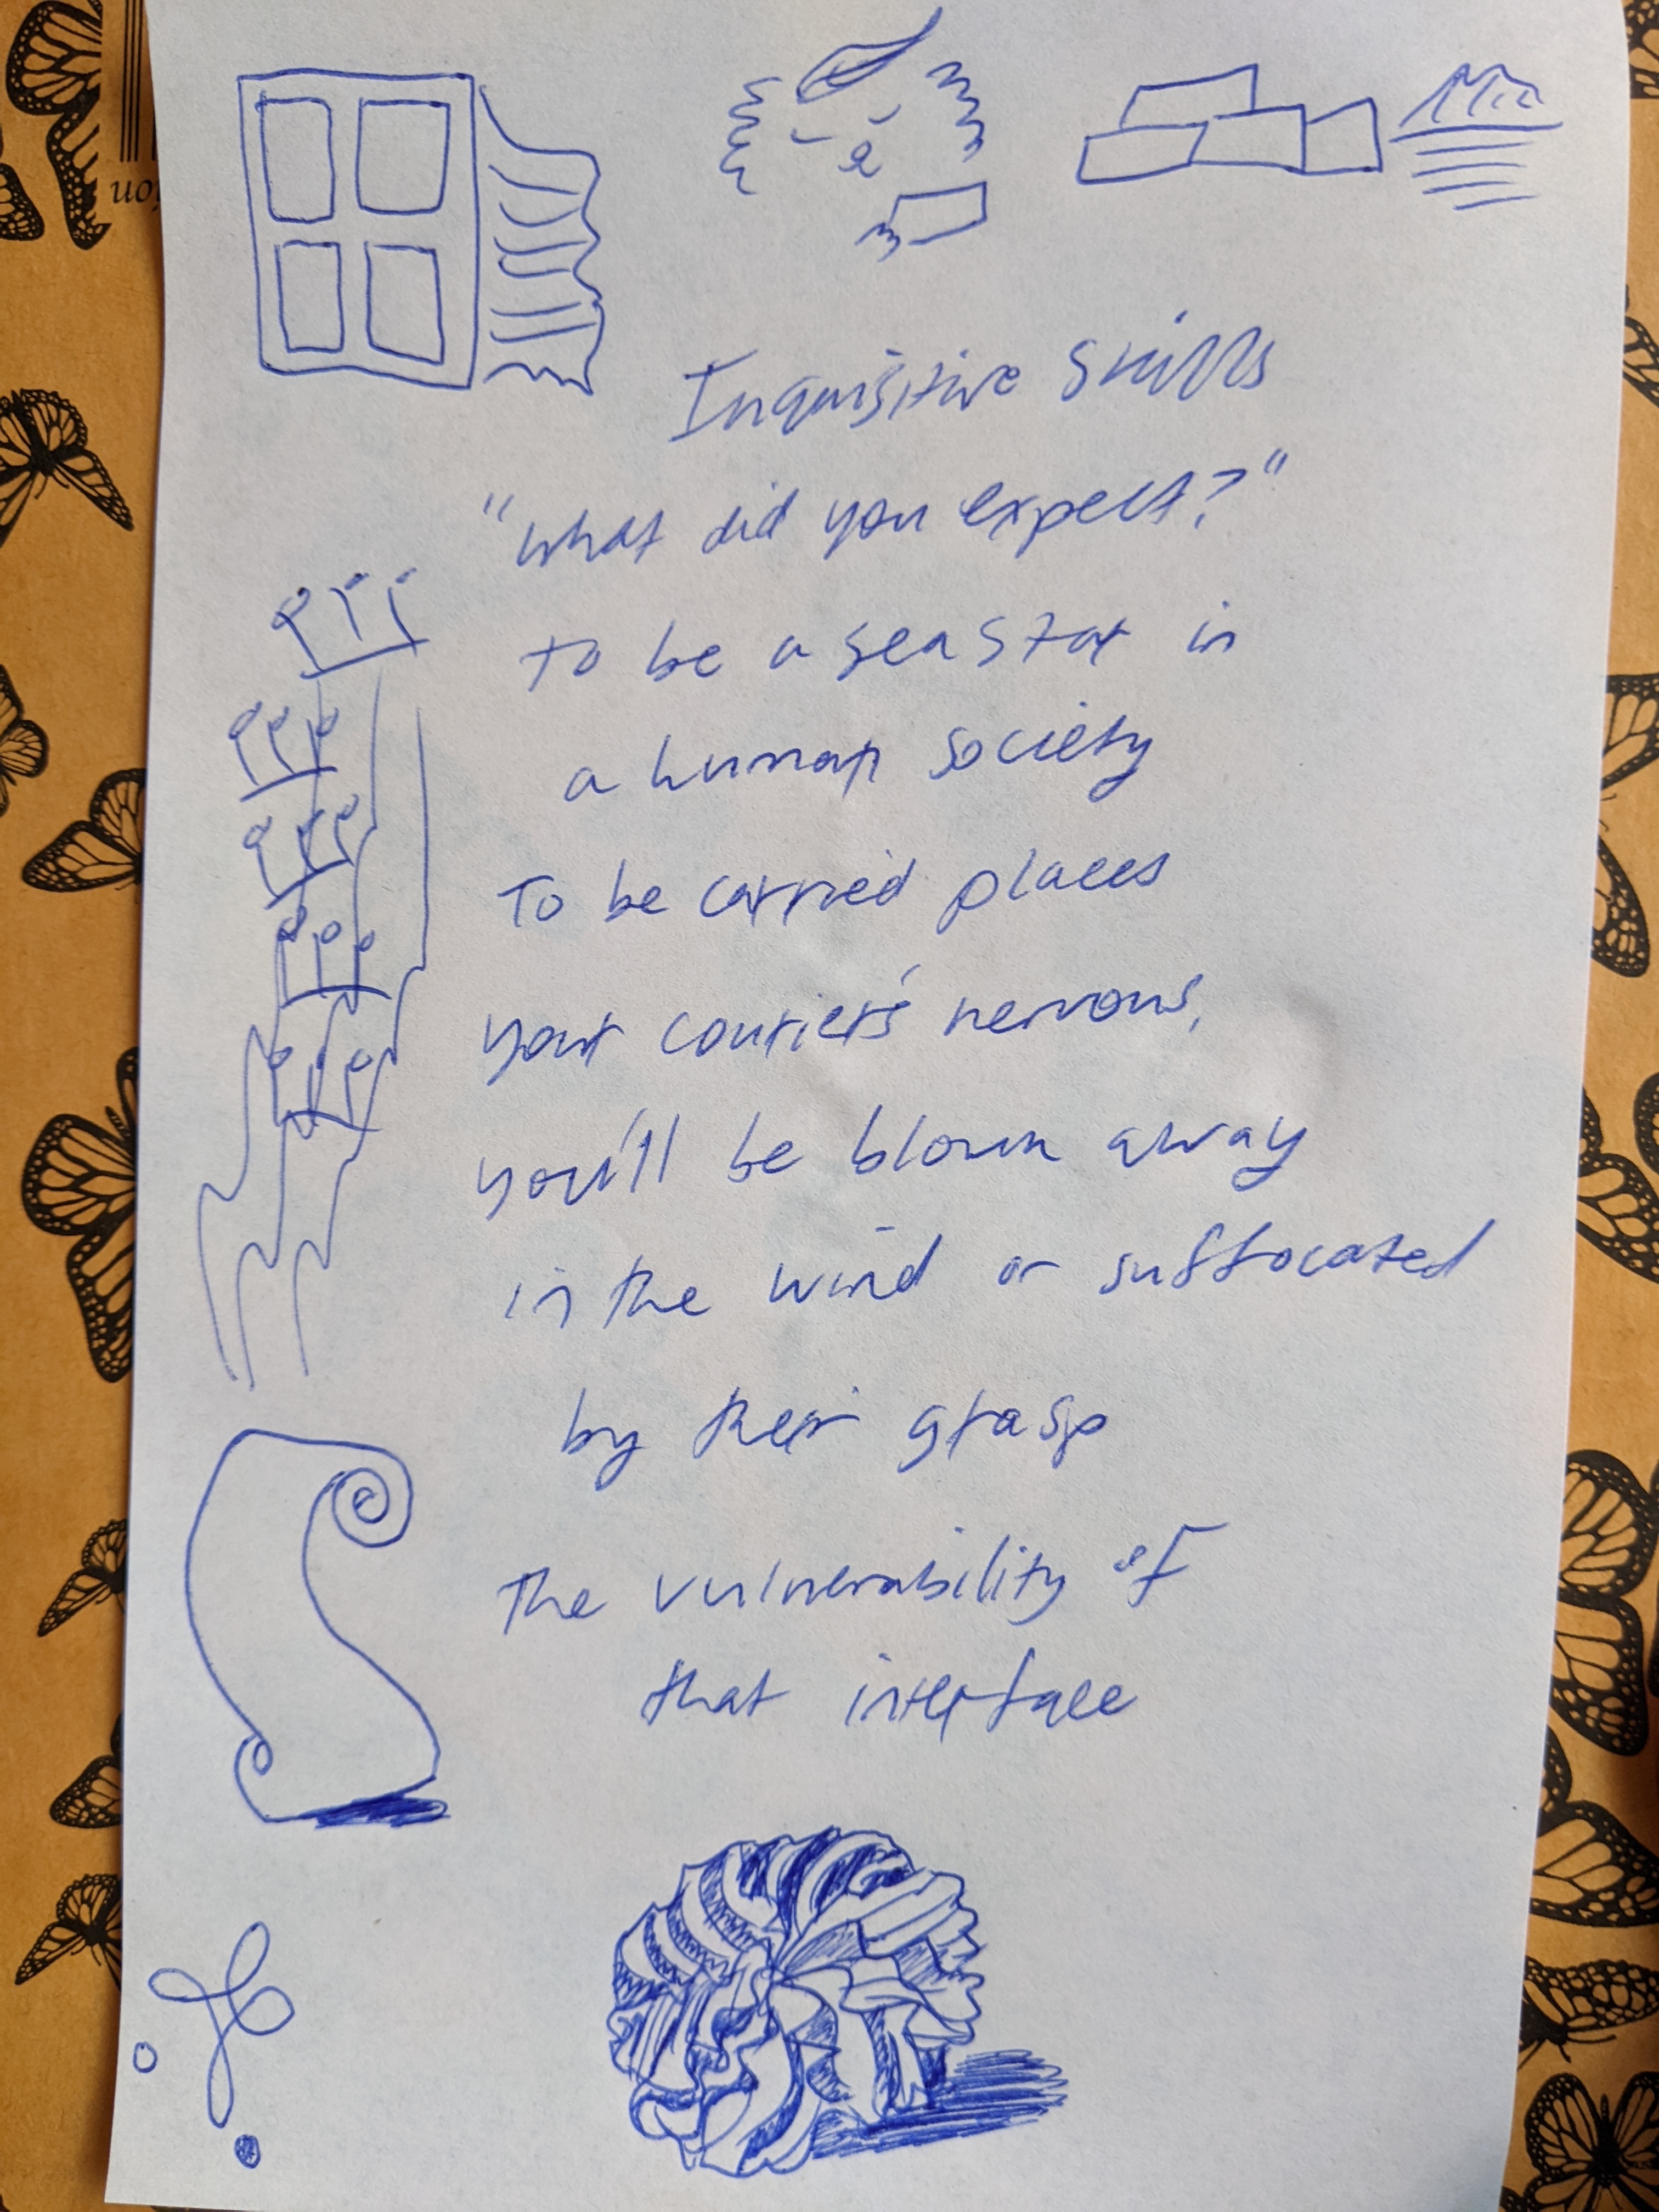 Inquisitive Skills
"What did you expect?"
to be a sea star in
a human society
To be carried places
your courier's nervous,
you'll be blown away
in the wind or suffocated
by their grasp
The vulnerability of
that interface